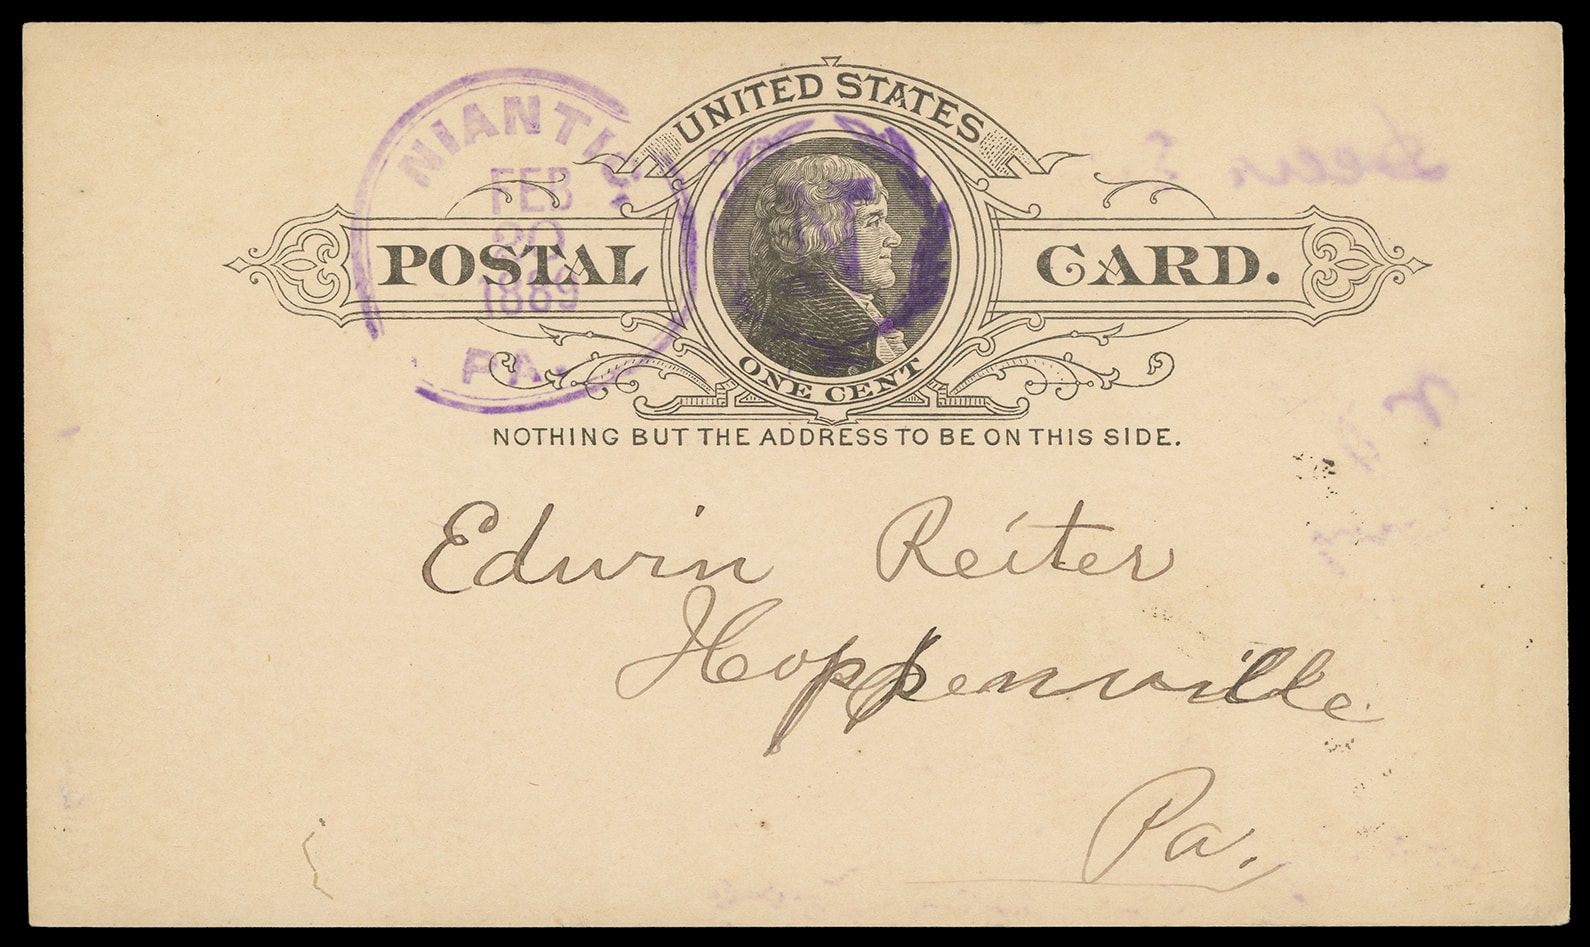 UNITED STATES
POSTAL CARD.
ONE CENT
NOTHING BUT THE ADDRESS TO BE ON THIS SIDE.
NIANTIC,
FEB
20
1889
PA.
Edwin Reiter
Hoppenville
Pa.